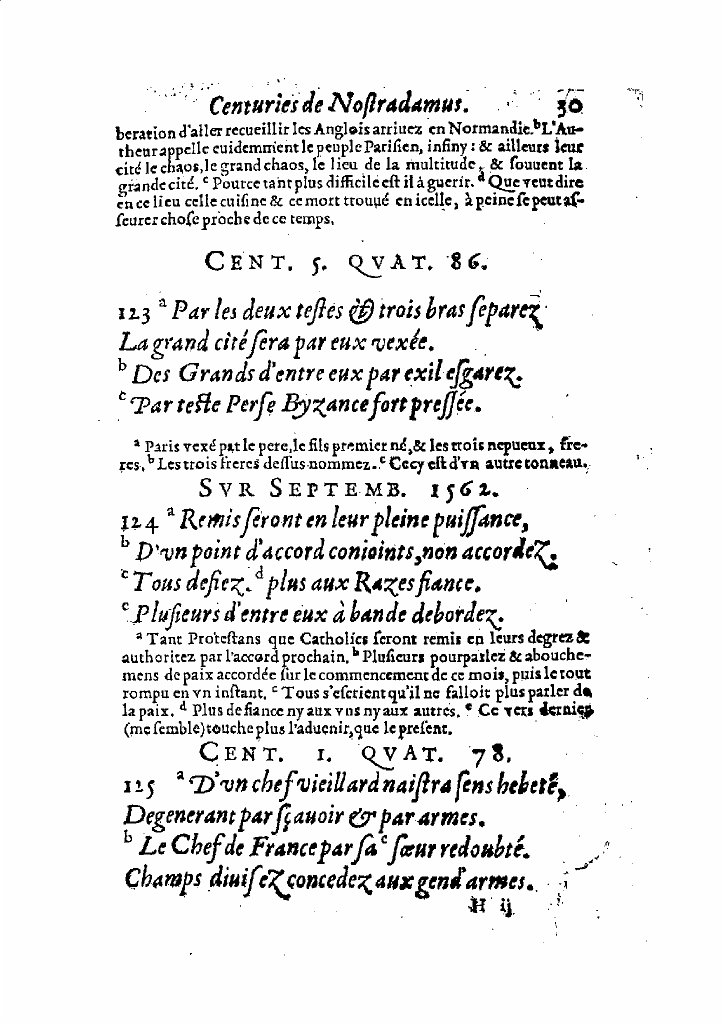 Centuries de Noſtradamus. 30
beration d'aller recueillir les Anglois arriuez en Normandie. b L'Au-
theur appelle euidemment le peuple Pariſien, infiny : & ailleurs leur
cité le chaos, le grand chaos, le lieu de la multitude, & ſouuent la
grande cité. c Pource tant plus difficile eſt il à guerir. d Que veut dire
en ce lieu celle cuiſine & ce mort trouué en icelle, à peine ſe peut aſ-
ſeurer choſe proche de ce temps.
CENT. 5. QVAT. 86.
123 a Par les deux teſtes & trois bras ſeparez
La grand cité ſera par eux vexée.
b Des Grands d'entre eux par exil eſgarez.
c Par teſte Perſe Byzance fort preſſée.
a Paris vexé par le pere, le fils premier né, & les trois nepueux, fre-
res. b Les trois freres deſſus nommez. c Cecy eſt d'vn autre tonneau.
SVR SEPTEMB. 1562.
124 a Remis ſeront en leur pleine puiſſance,
b D'vn point d'accord conioints, non accordez.
c Tous defiez. d plus aux Razes fiance.
e Pluſieurs d'entre eux à bande debordez.
a Tant Proteſtans que Catholics ſeront remis en leurs degrez &
authoritez par l'accord prochain. b Pluſieurs pourparlez & abouche-
mens de paix accordée ſur le commencement de ce mois, puis le tout
rompu en vn inſtant. c Tous s'eſcrient qu'il ne falloit plus parler de
la paix. d Plus de fiance ny aux vns ny aux autres. e Ce vers dernier
(me ſemble) touche plus l'aduenir, que le preſent.
CENT. 1. QVAT. 78.
125 a D'vn chef vieillard naiſtra ſens hebeté,
Degenerant par ſçauoir & par armes.
b Le Chef de France par ſa c ſœur redoubté.
Champs diuiſez concedez aux gend'armes.
H ij